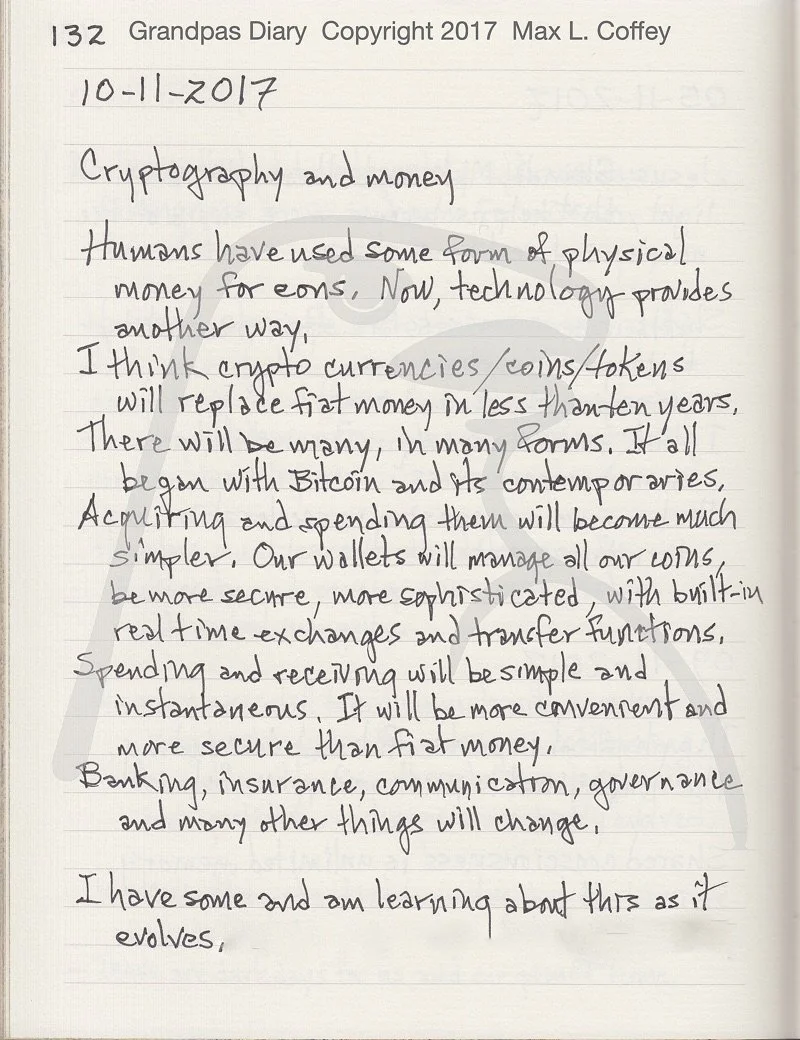 132 Grandpas Diary Copyright 2017 Max L. Coffey
10-11-2017
Cryptography and money
Humans have used some form of physical
money for eons. Now, technology provides
another way.
I think crypto currencies/coins/tokens
will replace fiat money in less than ten years.
There will be many, in many forms. It all
began with Bitcoin and its contemporaries.
Acquiring and spending them will become much
simpler. Our wallets will manage all our coins,
be more secure, more sophisticated, with built-in
real time exchanges and transfer functions.
Spending and receiving will be simple and
instantaneous. It will be more convenient and
more secure than fiat money.
Banking, insurance, communication, governance
and many other things will change.
I have some and am learning about this as it
evolves.